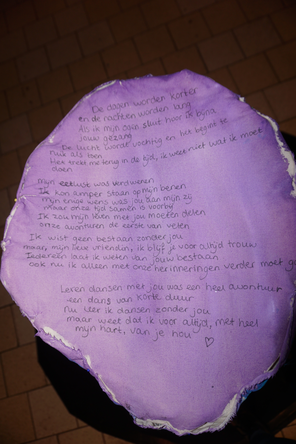 De dagen worden korter
en de nachten worden lang
Als ik mijn ogen sluit hoor ik bijna
jouw gezang
De lucht wordt vochtig en het begint te
ruik als toen
Het trekt me terug in de tijd, ik weet niet wat ik moet
doen
mijn eetlust was verdwenen
Ik kon amper staan op mijn benen
mijn enige wens was jou aan mijn zij
maar onze tijd samen is voorbij
Ik zou mijn leven met jou moeten delen
onze avonturen de eerste van velen
Ik wist geen bestaan zonder jou
maar, mijn leuk vriendin, ik blijf je voor altijd trouw
Iedereen laat ik weten van jouw bestaan
ook nu ik alleen met onze herinneringen verder moet ga
Leren dansen met jou was een heel avontuur
een dans van korte duur
nu leer ik dansen zonder jou
maar weet dat ik voor altijd, met heel
mijn hart, van je hou